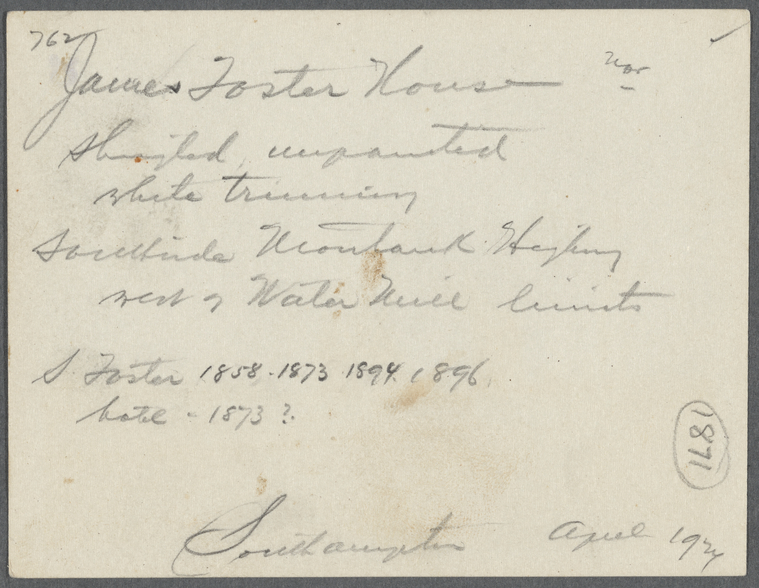 762
James Foster House
shingled, unpainted
white trimming
Southside Montauk Highway
west of Water Mill limits
S. Foster 1858-1873 1894 1896
hotel - 1873?
1871
Southampton April 192